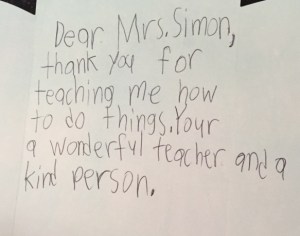 Dear Mrs. Simon,
thank you for
teaching me how
to do things. Your
a wonderful teacher and a
kind person.